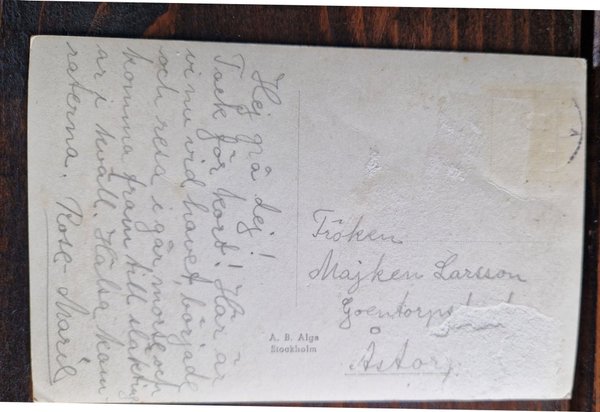 Hej på dej!
Tack för kort! Här är
vi nu vid havet, började
och resa i går morse och
komma fram till
ur i kväll. Hälsa kam-
raterna. Rose-Marie
A. B. Alga
Stockholm
Fröken
Majken Larsson
Åstorp.